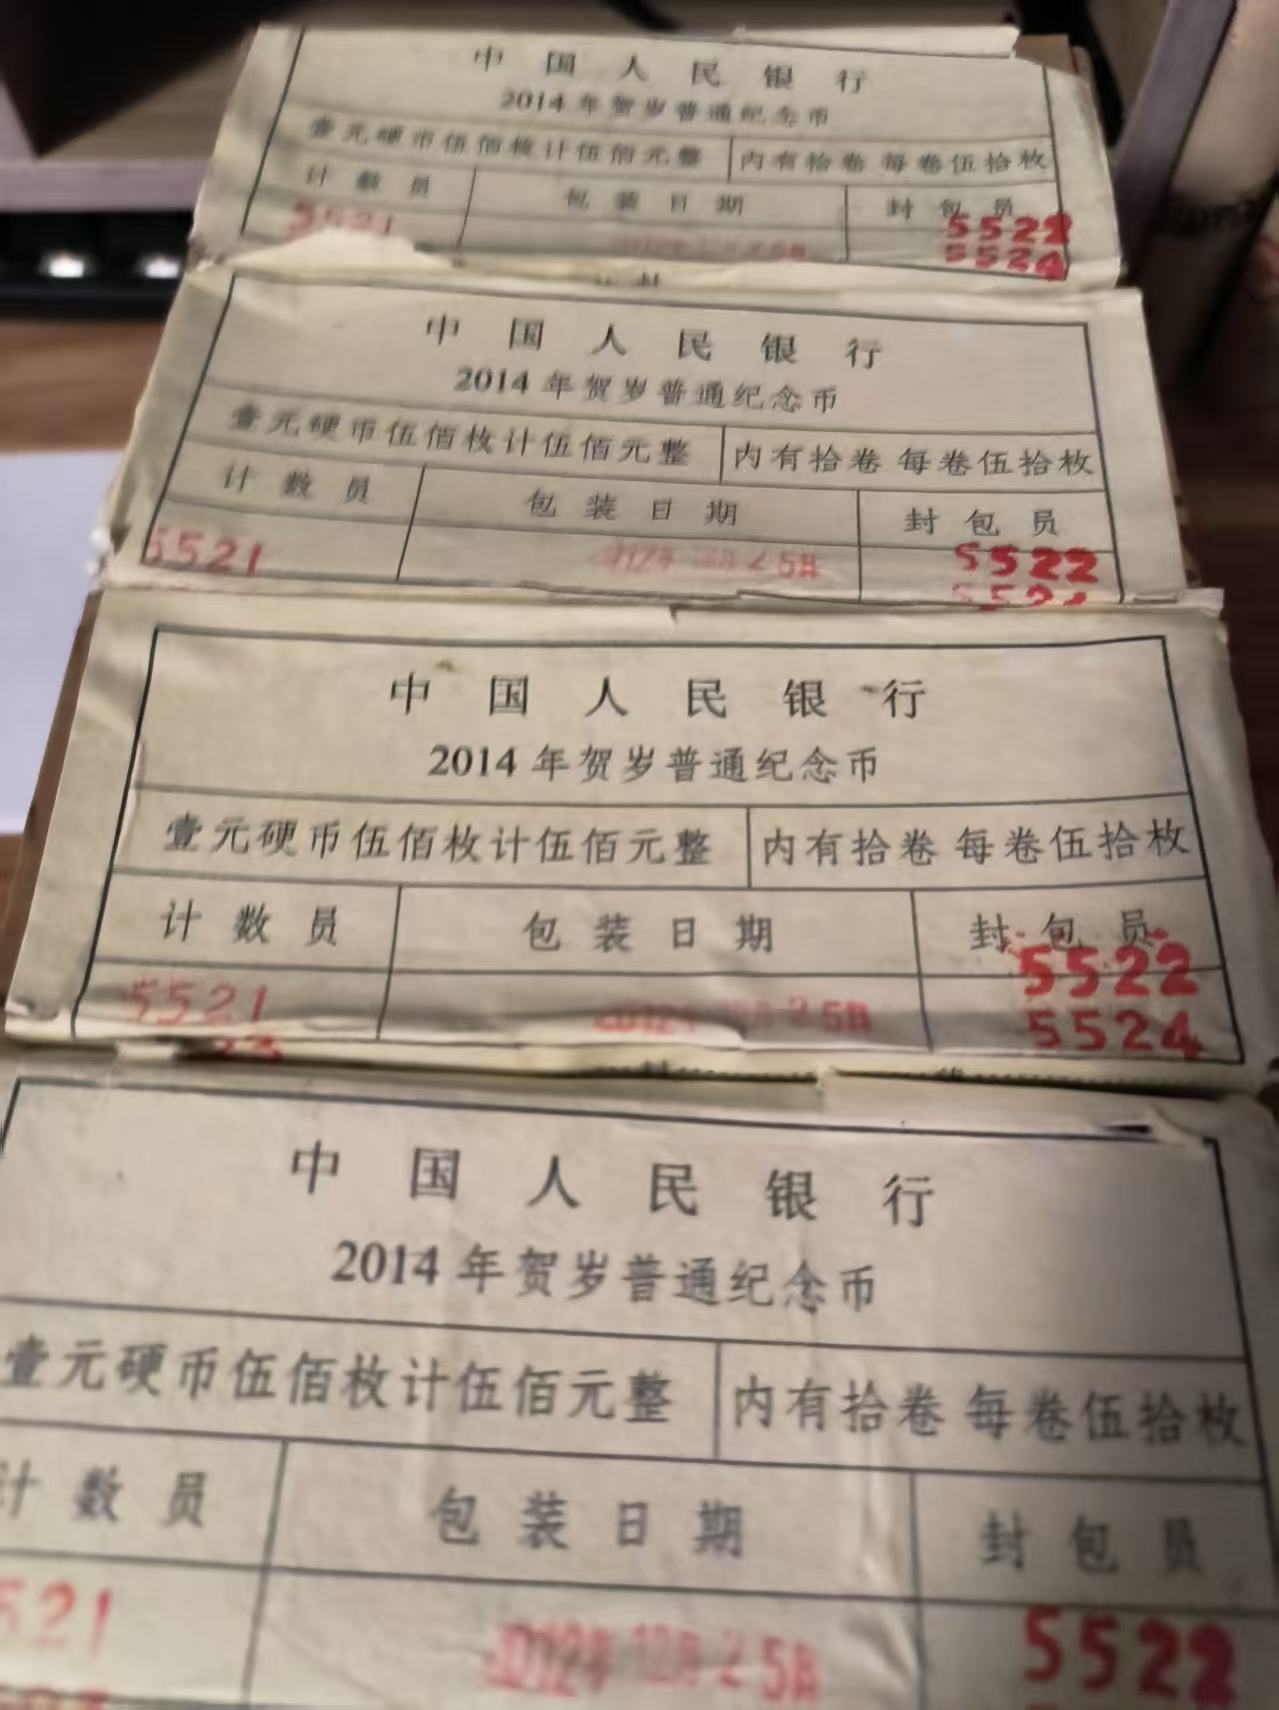 中国人民银行
2014年贺岁普通纪念币
壹元硬币伍佰枚计伍佰元整 内有拾卷 每卷伍拾枚
计数员 包装日期 封包员
5521 5522
5524
中国人民银行
2014年贺岁普通纪念币
壹元硬币伍佰枚计伍佰元整 内有拾卷 每卷伍拾枚
计数员 包装日期 封包员
5521 5522
中国人民银行
2014年贺岁普通纪念币
壹元硬币伍佰枚计伍佰元整 内有拾卷 每卷伍拾枚
计数员 包装日期 封包员
5521 5522
5524
中国人民银行
2014年贺岁普通纪念币
壹元硬币伍佰枚计伍佰元整 内有拾卷 每卷伍拾枚
计数员 包装日期 封包员
521 5522